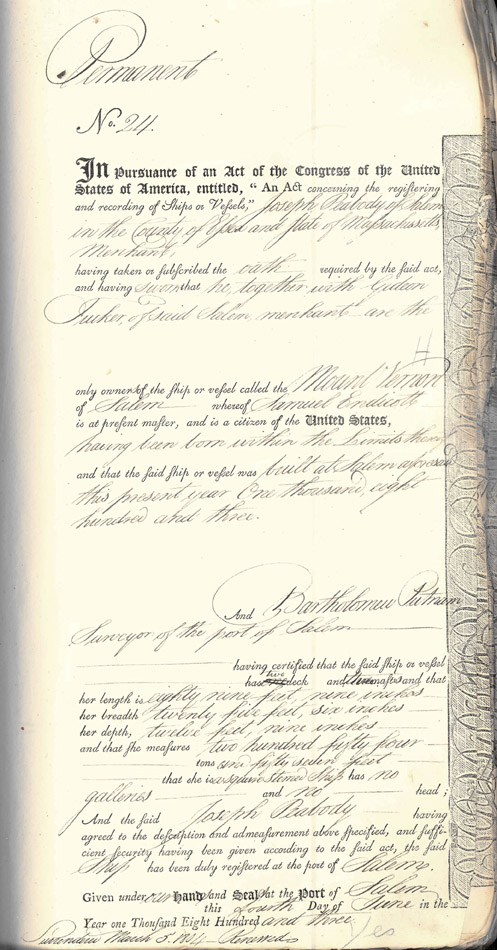 Permanent
No. 24.
In Pursuance of an Act of the Congress of the United
States of America, entitled, "An Act concerning the registering
and recording of Ships or Vessels," Joseph Peabody of Salem
in the County of Essex and State of Massachusetts,
Merchant,
having taken or subscribed the oath required by the said act,
and having Sworn that he, together with Gideon
Tucker, of said Salem, merchant are the
H
only owners of the ship or vessel called the Mount Vernon
of Salem whereof Samuel Endicott
is at present master, and is a citizen of the United States,
having been born within the Limits thereof
and that the said ship or vessel was built at Salem aforesaid
this present year One thousand, eight
hundred and three.
And Bartholomew Putnam
Surveyor of the port of Salem
having certified that the said ship or vessel
has two deck and three masts and that
her length is eighty nine feet, nine inches
her breadth twenty five feet, six inches
her depth, twelve feet, nine inches
and that she measures two hundred fifty four
tons and fifty seven feet
that she is a square Sterned Ship has no
galleries and no head;
And the said Joseph Peabody having
agreed to the description and admeasurement above specified, and suffi-
cient security having been given according to the said act, the said
Ship has been duly registered at the port of Salem.
Given under our Hands and Seals at the Port of Salem
this fourth Day of June in the
Year one Thousand Eight Hundred and three
Surrendered March 5. 1804